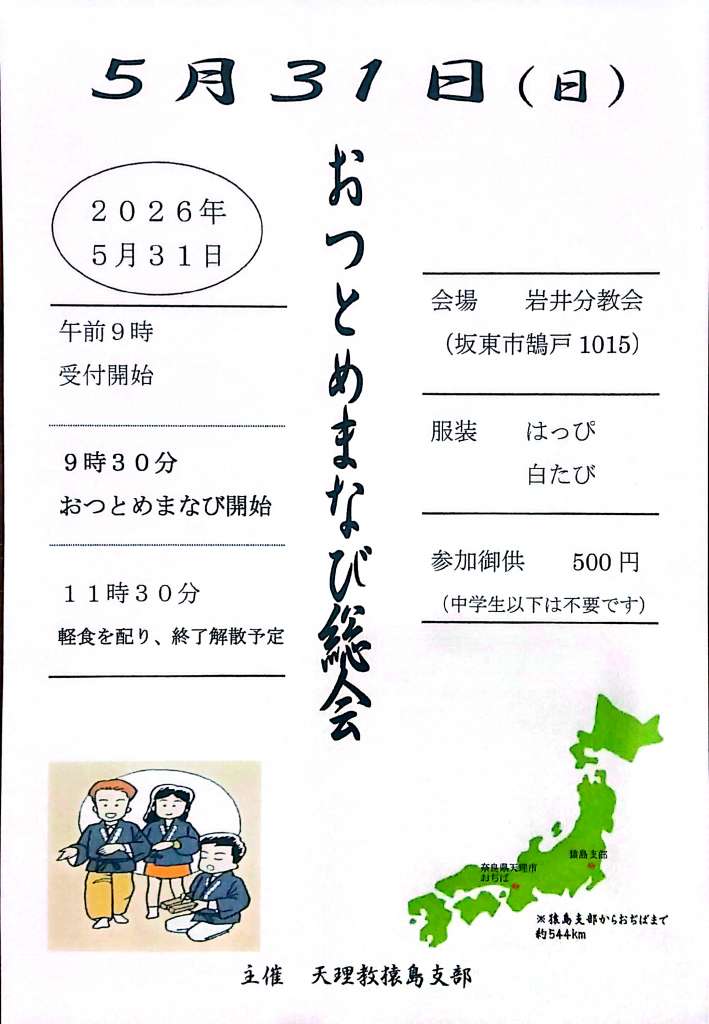 5月31日（日）
おつとめまなび総会
２０２６年
５月３１日
午前９時
受付開始
９時３０分
おつとめまなび開始
１１時３０分
軽食を配り、終了解散予定
会場　岩井分教会
（坂東市鵠戸 1015）
服装　はっぴ
白たび
参加御供　500 円
（中学生以下は不要です）
猿島支部
奈良県天理市
おぢば
※猿島支部からおぢばまで
約544km
主催　天理教猿島支部